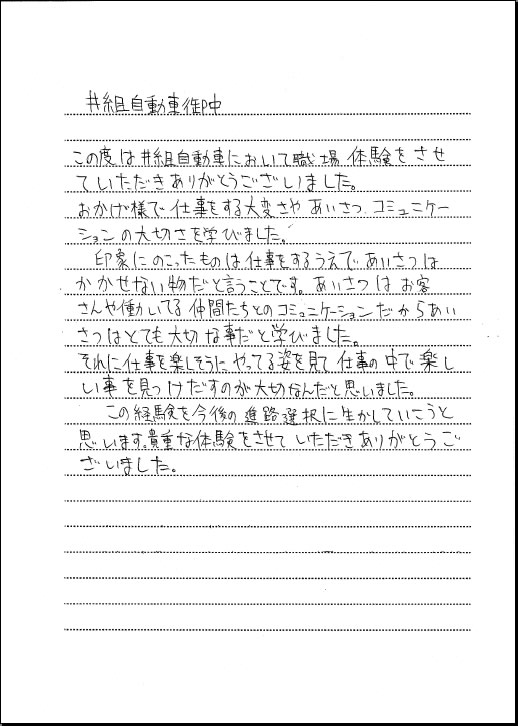 井組自動車御中
この度は井組自動車において職場体験をさせ
ていただきありがとうございました。
おかげ様で仕事をする大変さやあいさつ、コミュニケー
ションの大切さを学びました。
印象にのこったものは仕事をするうえであいさつは
かかせない物だと言うことです。あいさつはお客
さんや働いてる仲間たちとのコミュニケーションだからあい
さつはとても大切な事だと学びました。
それに仕事を楽しそうにやってる姿を見て仕事の中で楽し
い事を見つけだすのが大切なんだと思いました。
この経験を今後の進路選択に生かしていこうと
思います。貴重な体験をさせていただきありがとうご
ざいました。